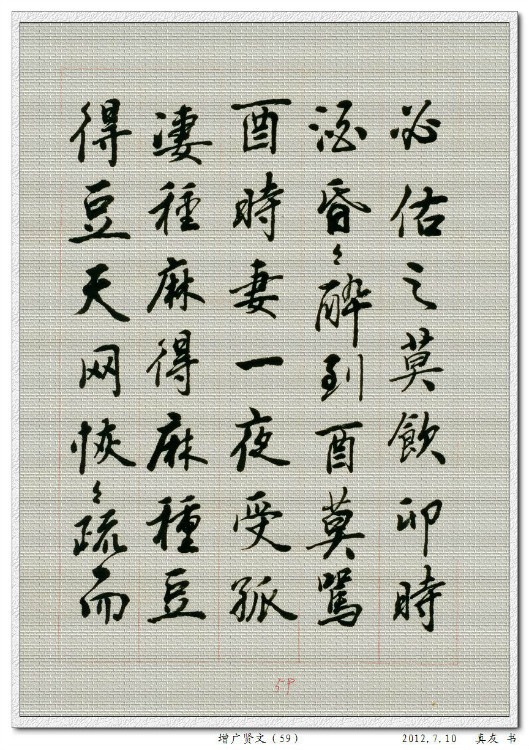 必佑之莫飲卯時
酒昏々醉到酉莫罵
酉時妻一夜受孤
淒種麻得麻種豆
得豆天网恢々疏而
59
增广贤文（59）
2012,7,10 真友 书